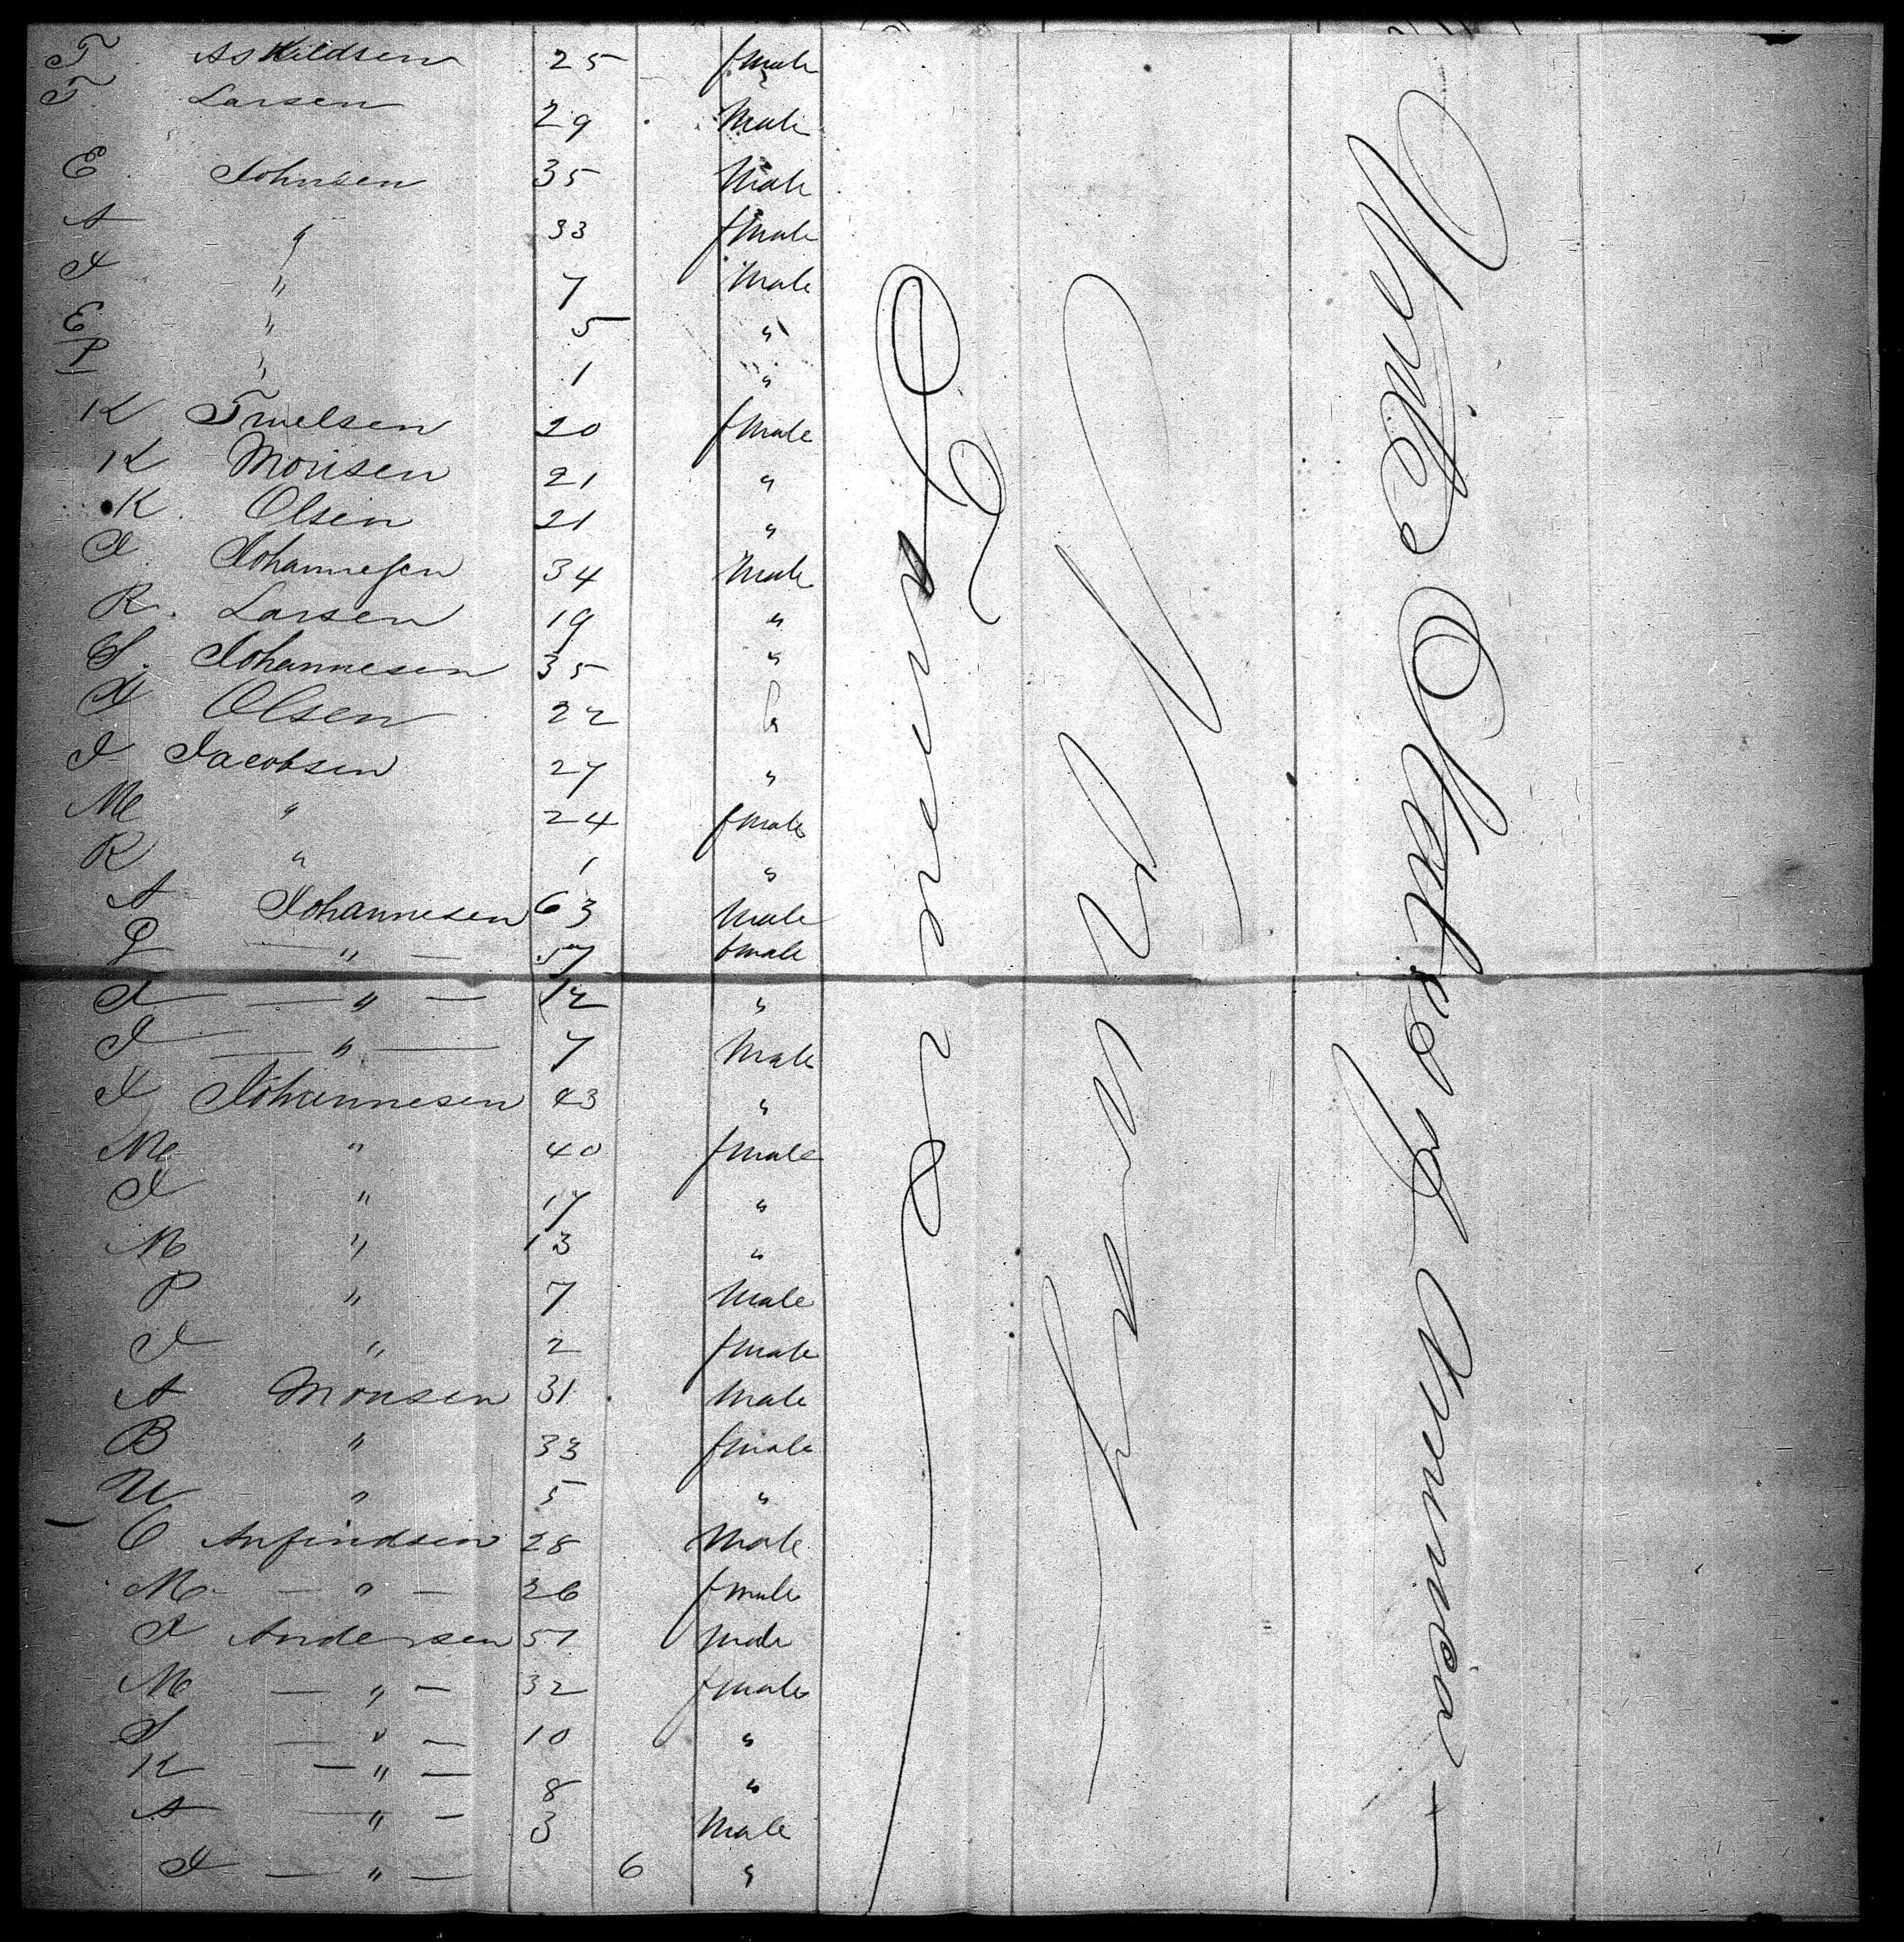 T Askildsen 25 female
T. Larsen 29 Male
E. Johnsen 35 Male
A " 33 female
I " 7 Male
E " 5 "
P " 1 "
K Truelsen 20 female
K Monsen 21 "
K. Olsen 21 "
I. Johannesen 34 Male
R. Larsen 19 "
S. Johannesen 35 "
I Olsen 22 "
I Jacobsen 27 "
M " 24 female
R " 1 "
A Johannesen 63 Male
G — " — 57 female
I — " — 12 "
I — " — 7 Male
I Johannesen 43 "
M " 40 female
I " 17 "
M " 13 "
P " 7 Male
I " 2 female
A Monsen 31 Male
B " 33 female
U " 5 "
O Anfindsen 28 Male
M — " — 26 female
I Andersen 51 Male
M — " — 32 female
S — " — 10 "
K — " — 8 "
A — " — 3 Male
I — " — 6 "
Farmers
Norway
United States of America